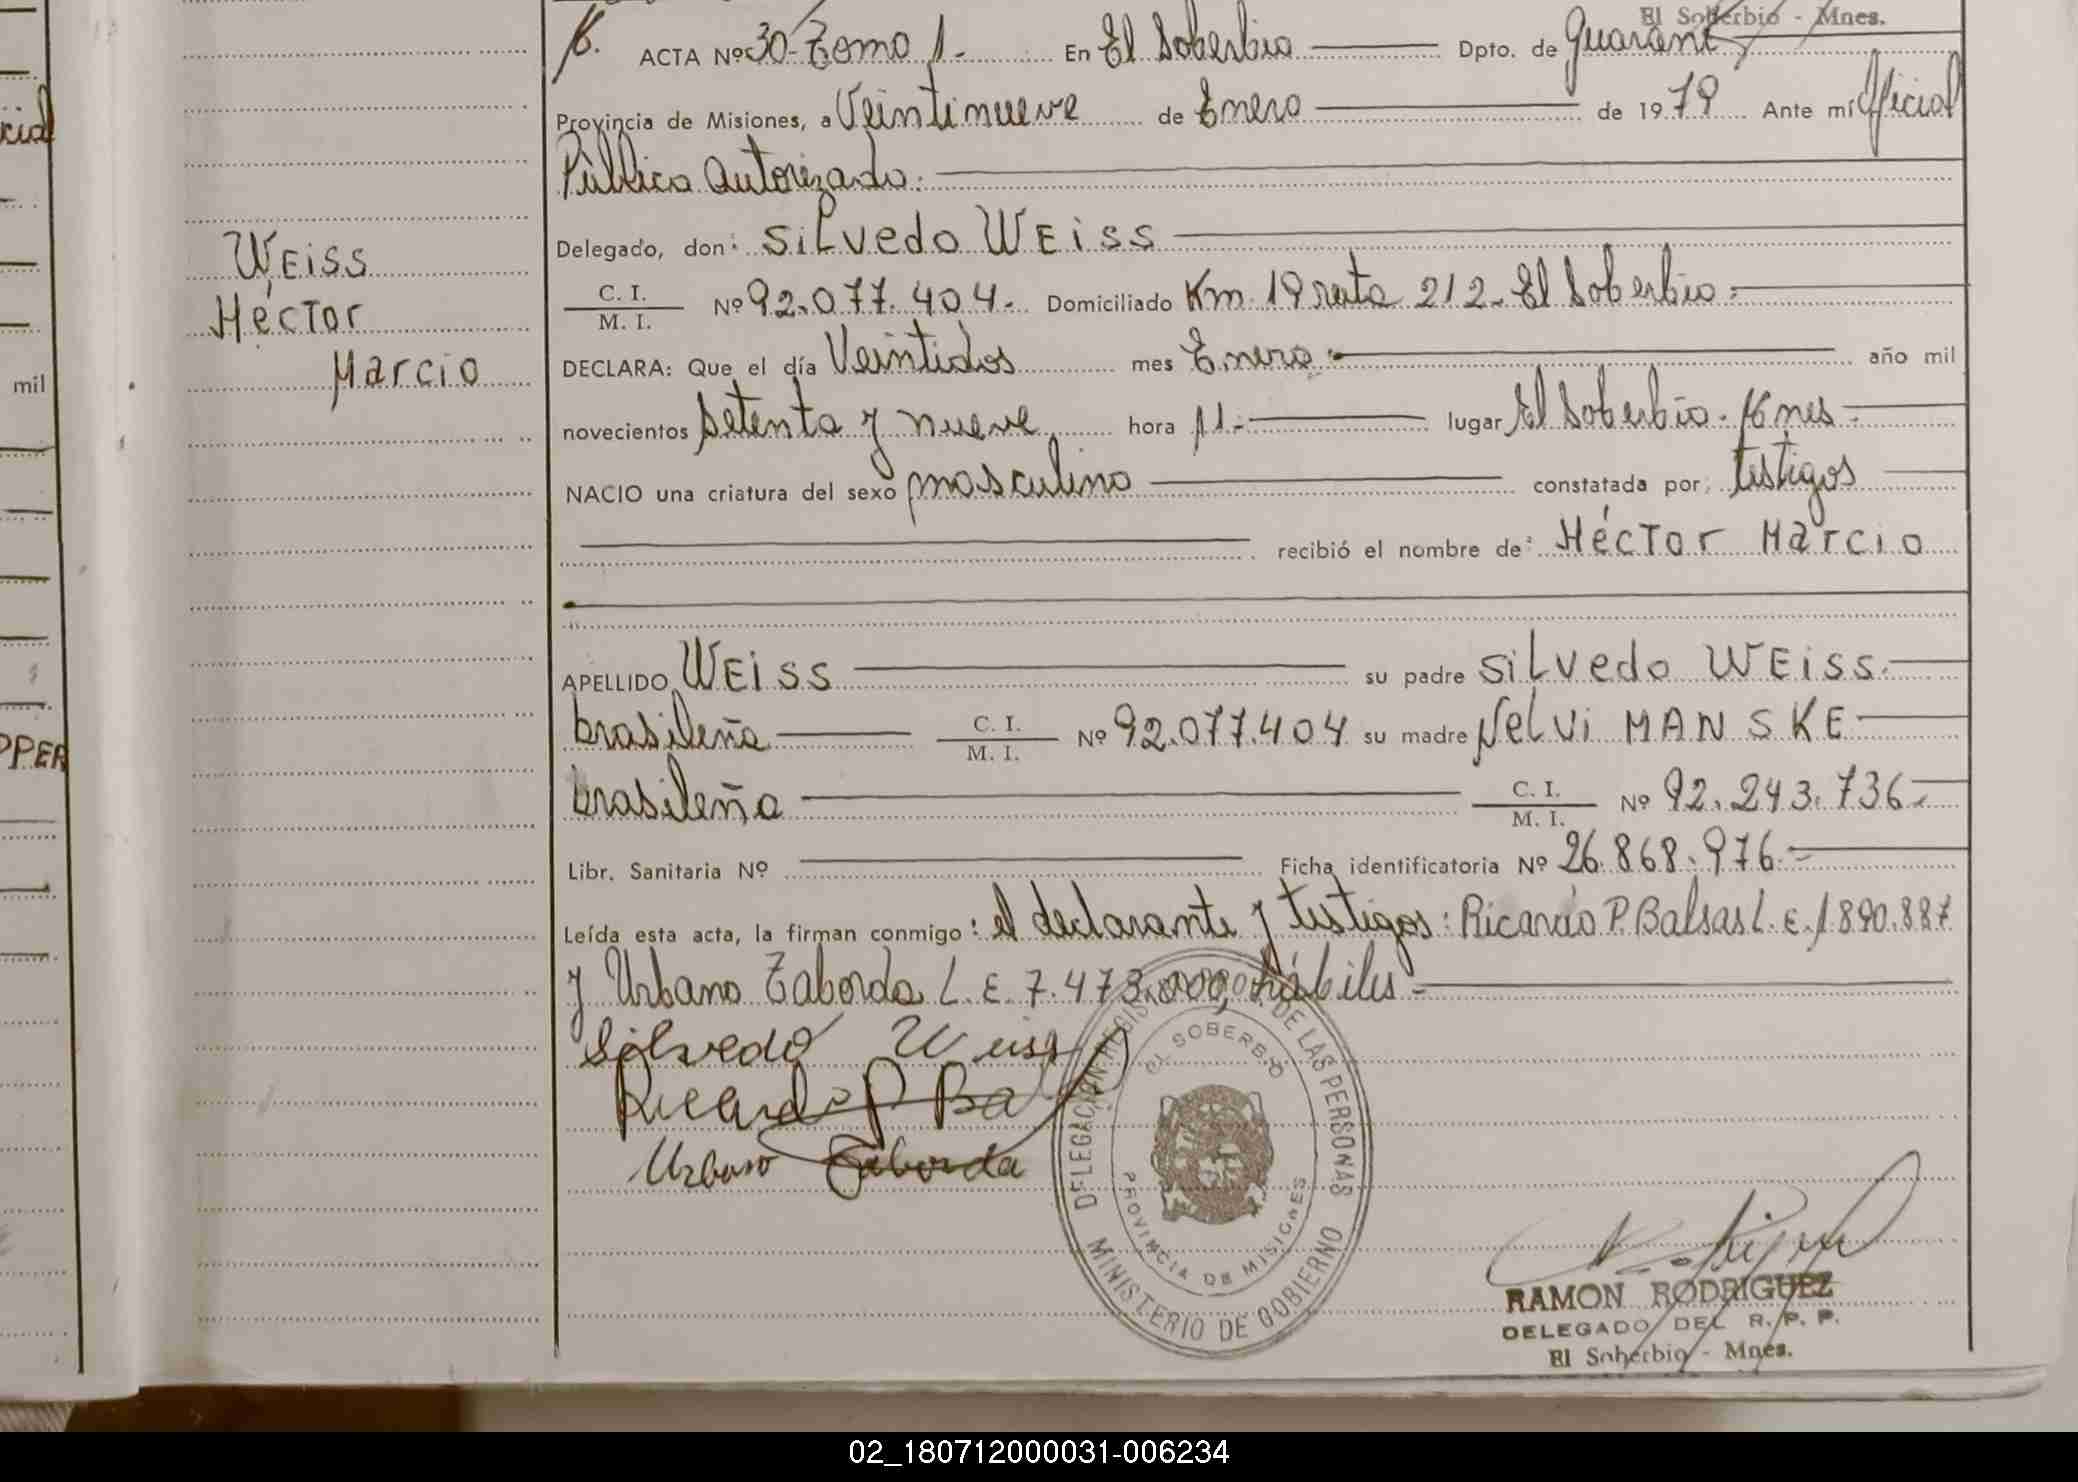 El Soberbio - Mnes.
ACTA Nº 30 - Tomo 1 - En El Soberbio Dpto. de Guaraní
Provincia de Misiones, a Veintinueve de Enero de 1979 Ante mí Oficial
Público Autorizado.
Delegado, don: SiLvedo WEiss
C. I. / M. I. Nº 92.077.404. Domiciliado Km 19 ruta 212 - El Soberbio -
DECLARA: Que el día Veintidos mes Enero - año mil
novecientos setenta y nueve hora 11 - lugar El Soberbio - Mnes -
NACIO una criatura del sexo masculino constatada por: testigos
recibió el nombre de: HécTor Marcio
APELLIDO WEiss su padre SiLvedo WEiss -
brasileña C. I. / M. I. Nº 92.077.404 su madre NeLvi MANSKE
brasileña C. I. / M. I. Nº 92.243.736 -
Libr. Sanitaria Nº Ficha identificatoria Nº 26.868.976 -
Leída esta acta, la firman conmigo: el declarante y testigos: Ricardo P. Balsas L. E. 1.890.887
y Urbano Taborda L. E. 7.473.000, hábiles -
Silvedo Weiss
Ricardo P Ba
Urbano Taborda
DELEGACIÓN DE LAS PERSONAS
EL SOBERBIO
PROVINCIA DE MISIONES
MINISTERIO DE GOBIERNO
RAMON RODRIGUEZ
DELEGADO DEL R. P. P.
El Soberbio - Mnes.
WEiss
HécTor
Marcio
cial
mil
PPER
02_180712000031-006234